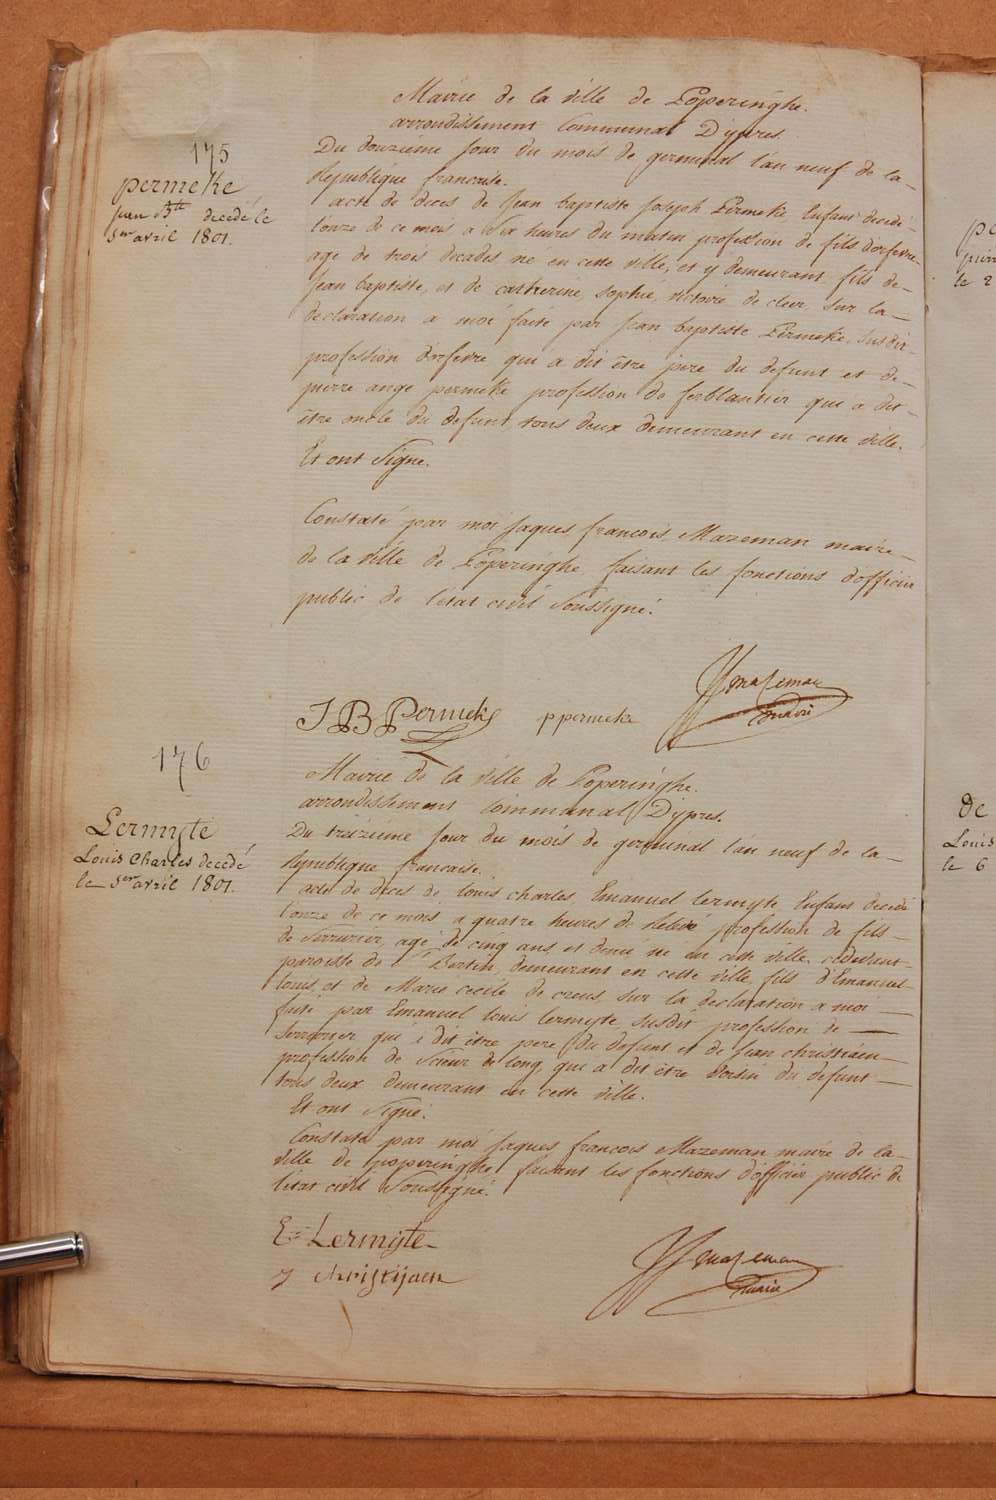 175
permeke
Jean Bte decedé le
1er avril 1801.
Mairie de la ville de Poperinghe.
arrondissement Communal D'ypres.
Du douzième jour du mois de germinal l'an neuf de la
République française.
acte de deces de Jean baptiste Joseph Permeke Enfant decedé
l'onze de ce mois a six heures du matin profession de fils d'orfevre
age de trois decades né en cette ville, et y demeurant, fils de
Jean baptiste, et de catherine, sophie, victoire de cleir, sur la
declaration a moi faite par Jean baptiste Permeke, susdit
profession d'orfevre qui a dit être pere du defunt et de
pierre ange permeke profession de ferblantier qui a dit
être oncle du defunt, tous deux demeurant en cette ville.
Et ont signe.
Constaté par moi Jaques francois Mazeman maire
de la ville de Poperinghe faisant les fonctions d'officier
public de l'état civil soussigné.
J B Permeke ppermeke JJ mazeman
maire
176
Lermyte
Louis Charles decedé
le 1er avril 1801.
Mairie de la ville de Poperinghe.
arrondissement Communal D'ypres.
Du treizième jour du mois de germinal l'an neuf de la
République française.
acte de deces de louis charles Emanuel lermyte Enfant decede
l'onze de ce mois a quatre heures de relevé profession de fils
de Serrurier, agé de cinq ans et demi né en cette ville, cidevant
paroisse de St Bertin, demeurant en cette ville, fils d'Emanuel
louis, et de Marie cecile de creus, sur la declaration a moi
faite par Emanuel louis lermyte susdit profession de
Serrurier qui a dit être pere du defunt et de Jean christiaen
profession de scieur de long, qui a dit être voisin du defunt
tous deux demeurant en cette ville.
Et ont signé.
Constaté par moi Jaques francois Mazeman maire de la
ville de poperinghe faisant les fonctions d'officier public de
l'état civil soussigné.
E: Lermijte
J christijaen JJ mazeman
maire
pe
le 2
De
Louis
le 6